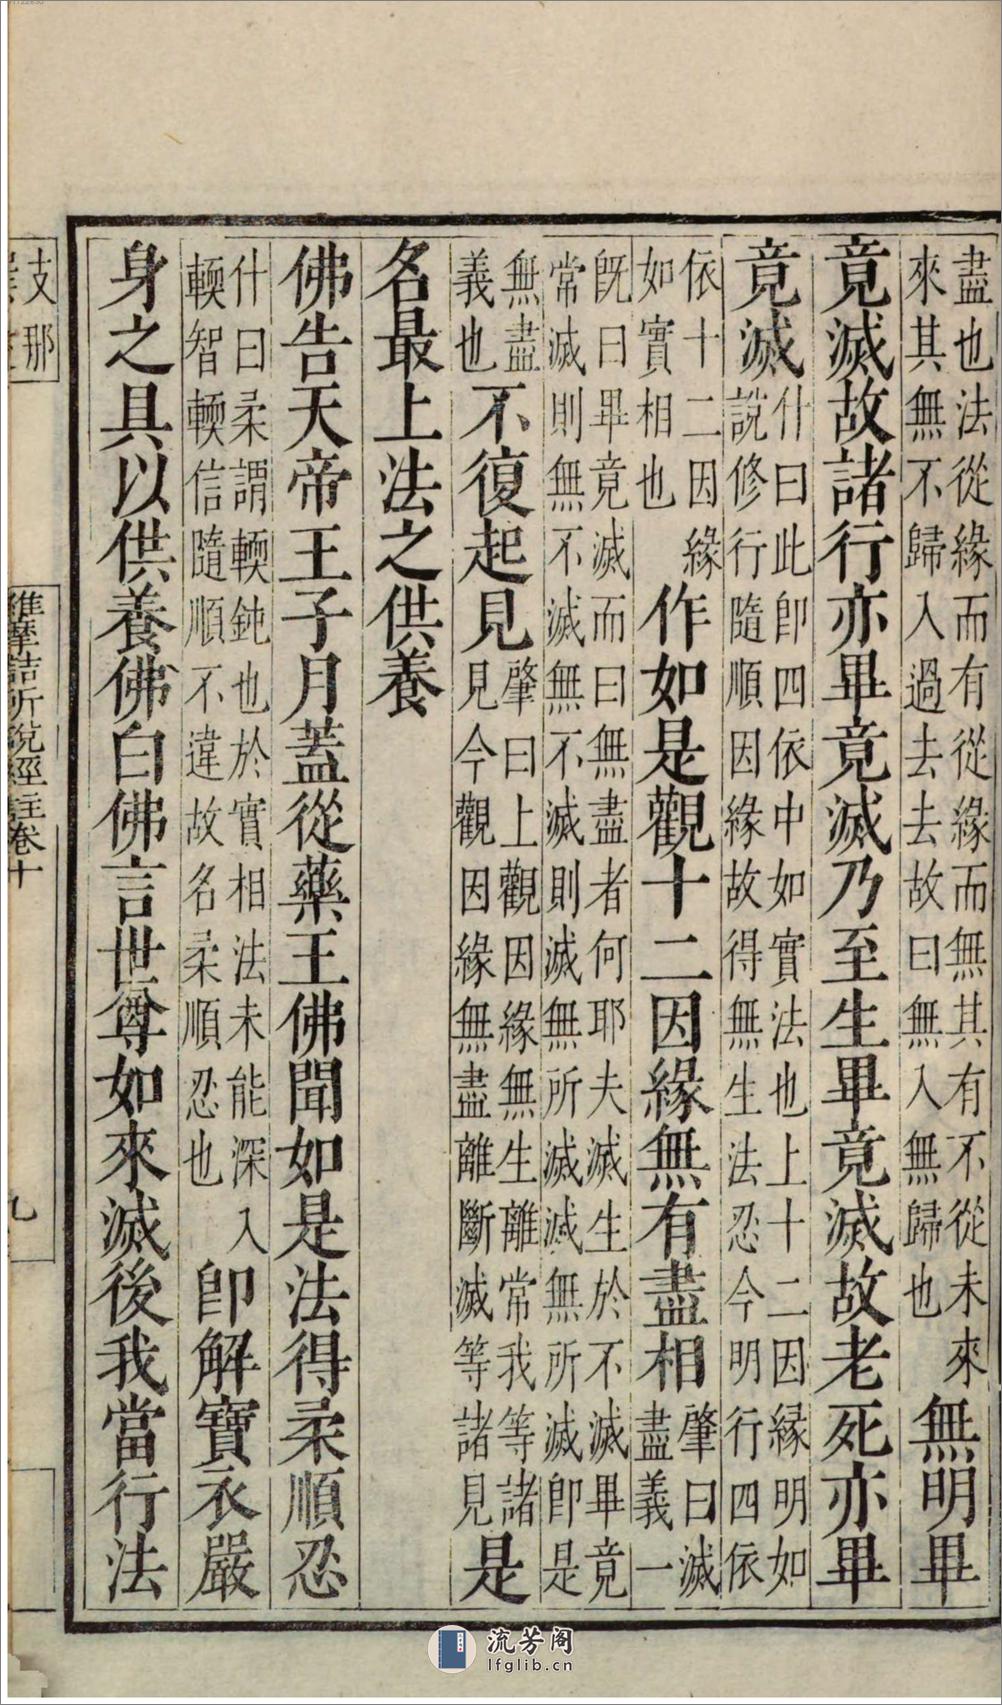 盡也法從緣而有從緣而無其有不從未來
來其無不歸入過去去故曰無入無歸也
無明畢
竟滅故諸行亦畢竟滅乃至生畢竟滅故老死亦畢
竟滅
什曰此即四依中如實法也上十二因緣明如
說修行隨順因緣故得無生法忍今明行四依
依十二因緣
如實相也
作如是觀十二因緣無有盡相
肇曰滅
盡義一
既曰畢竟滅而曰無盡者何耶夫滅生於不滅畢竟
常滅則無不滅無不滅則滅無所滅滅無所滅即是
無盡
義也
不復起見
肇曰上觀因緣無生離常我等諸
見今觀因緣無盡離斷滅等諸見
是
名最上法之供養
佛告天帝王子月蓋從藥王佛聞如是法得柔順忍
什曰柔謂輭鈍也於實相法未能深入
輭智輭信隨順不違故名柔順忍也
即解寶衣嚴
身之具以供養佛白佛言世尊如來滅後我當行法
支那
維摩詰所說經註卷十
九
流芳阁
lfglib.cn